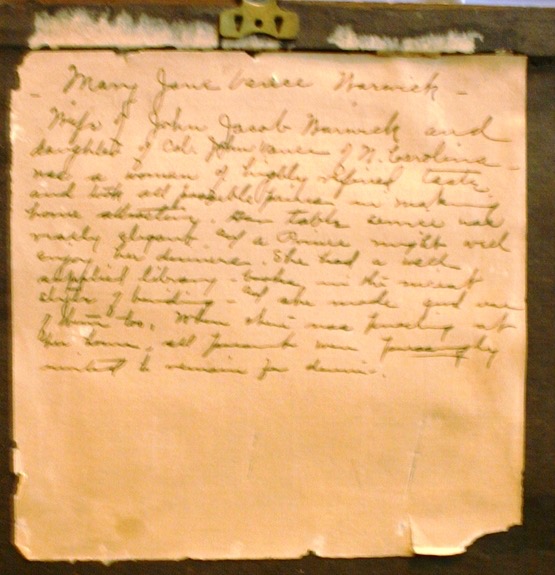 - Mary Jane Vance Warwick -
Wife of John Jacob Warwick and
daughter of Col. John Vance of N. Carolina -
was a woman of highly refined taste
and took all possible in making
home attractive. Her table service was
really elegant. And a Prince might well
enjoy her dinners. She had a well
supplied library - books in the nicest
style of binding - And she made good use
of them too. When there was preaching at
her home, all present were pressingly
invited to remain for dinner.